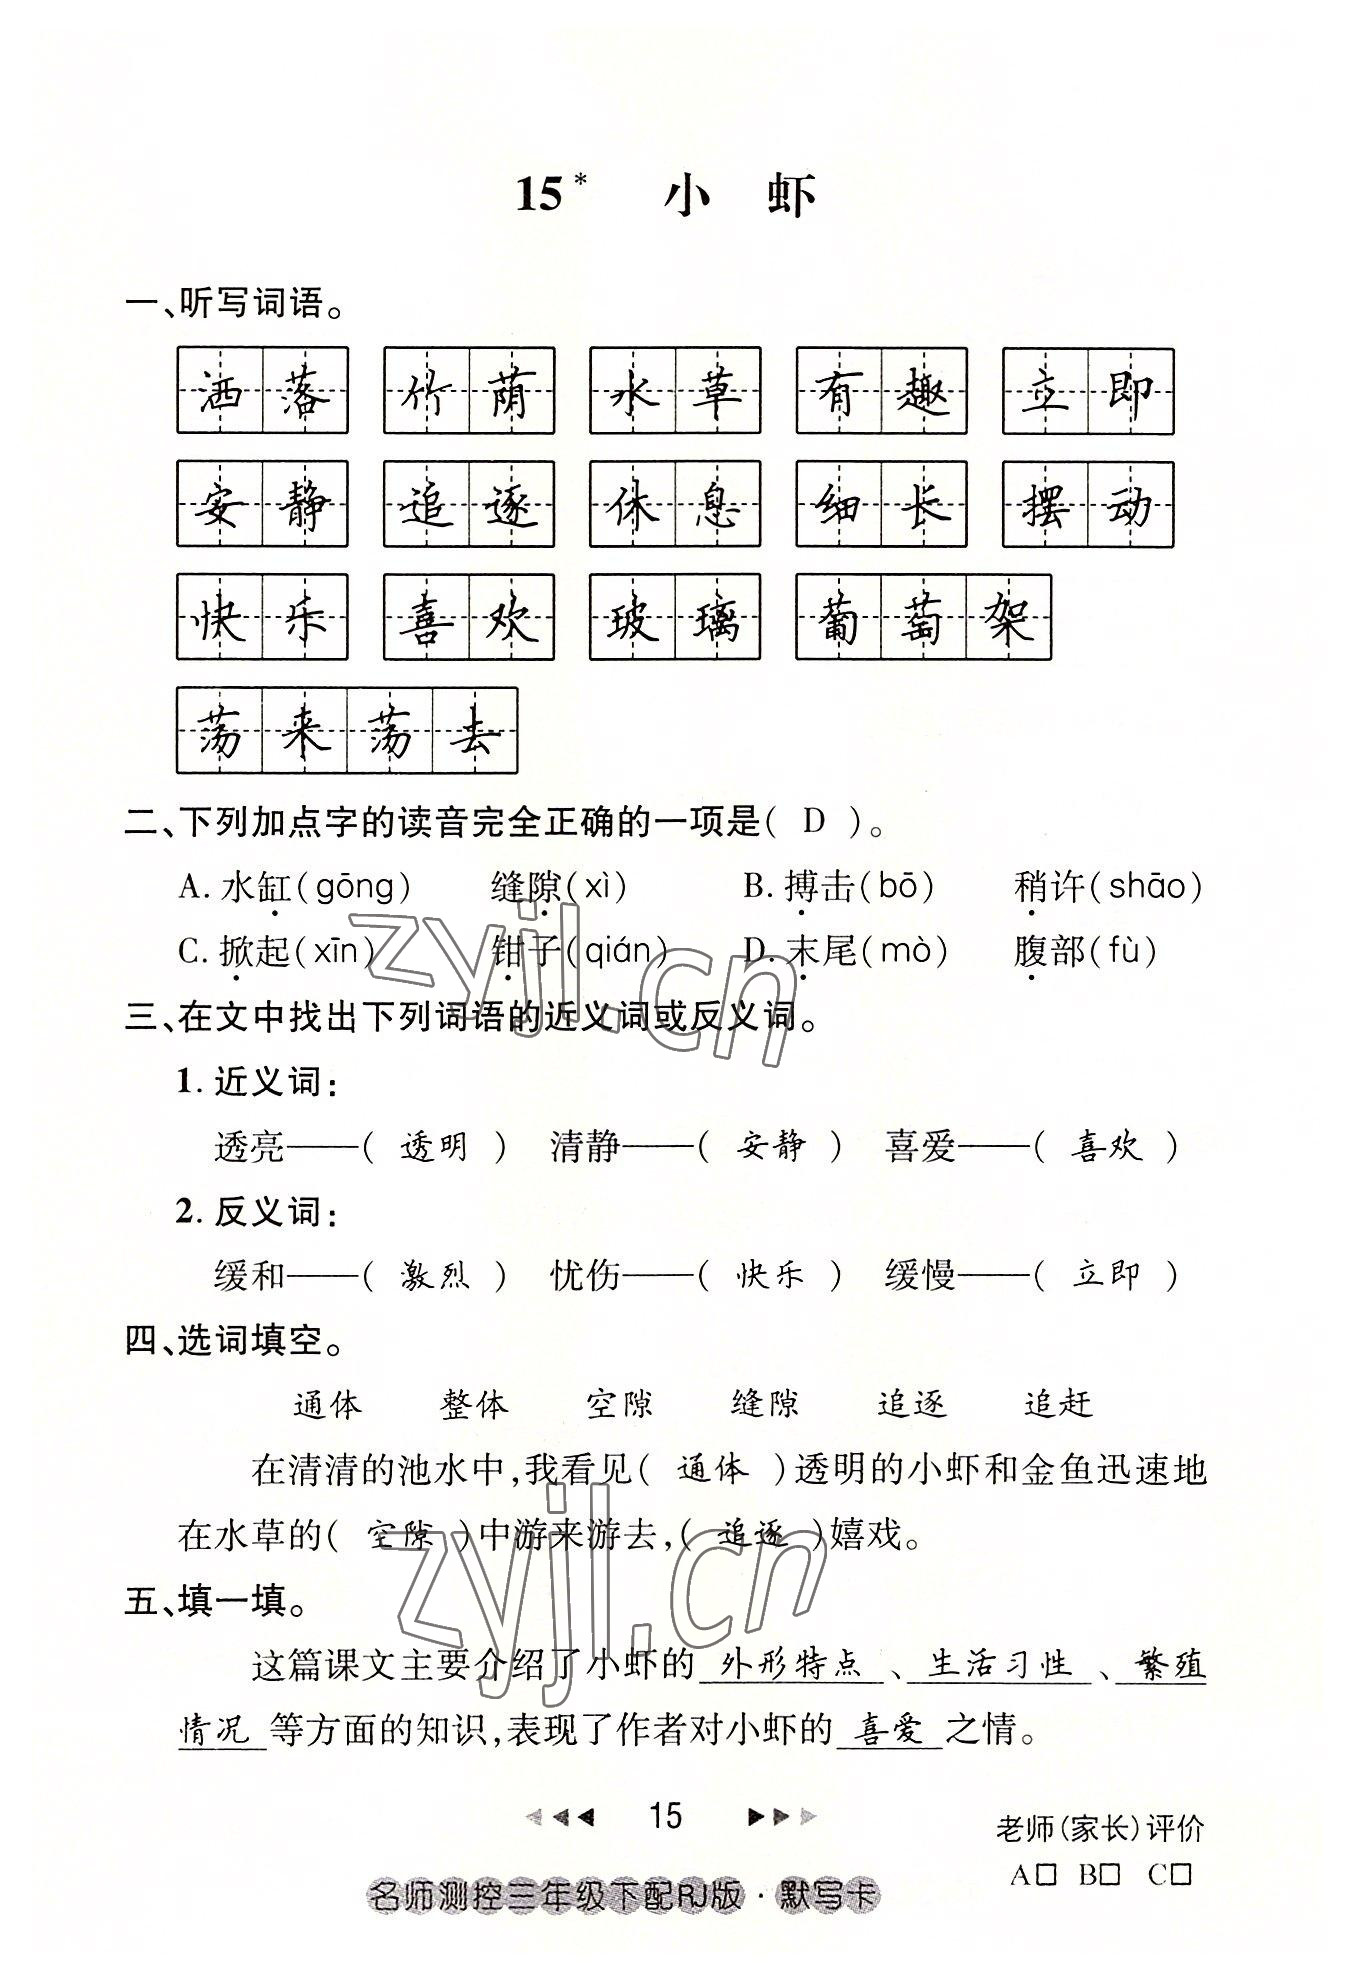 15* 小 虾
一、听写词语。
洒落 竹荫 水草 有趣 立即
安静 追逐 休息 细长 摆动
快乐 喜欢 玻璃 葡萄架
荡来荡去
二、下列加点字的读音完全正确的一项是( D )。
A. 水缸(gōng) 缝隙(xì) B. 搏击(bō) 稍许(shāo)
C. 掀起(xīn) 钳子(qián) D. 末尾(mò) 腹部(fù)
三、在文中找出下列词语的近义词或反义词。
1. 近义词：
透亮——( 透明 ) 清静——( 安静 ) 喜爱——( 喜欢 )
2. 反义词：
缓和——( 激烈 ) 忧伤——( 快乐 ) 缓慢——( 立即 )
四、选词填空。
通体 整体 空隙 缝隙 追逐 追赶
在清清的池水中,我看见( 通体 )透明的小虾和金鱼迅速地
在水草的( 空隙 )中游来游去,( 追逐 )嬉戏。
五、填一填。
这篇课文主要介绍了小虾的 外形特点 、 生活习性 、 繁殖
情况 等方面的知识,表现了作者对小虾的 喜爱 之情。
15
老师(家长)评价
A□ B□ C□
名师测控三年级下配RJ版·默写卡
zyjl.cn
zyjl.cn